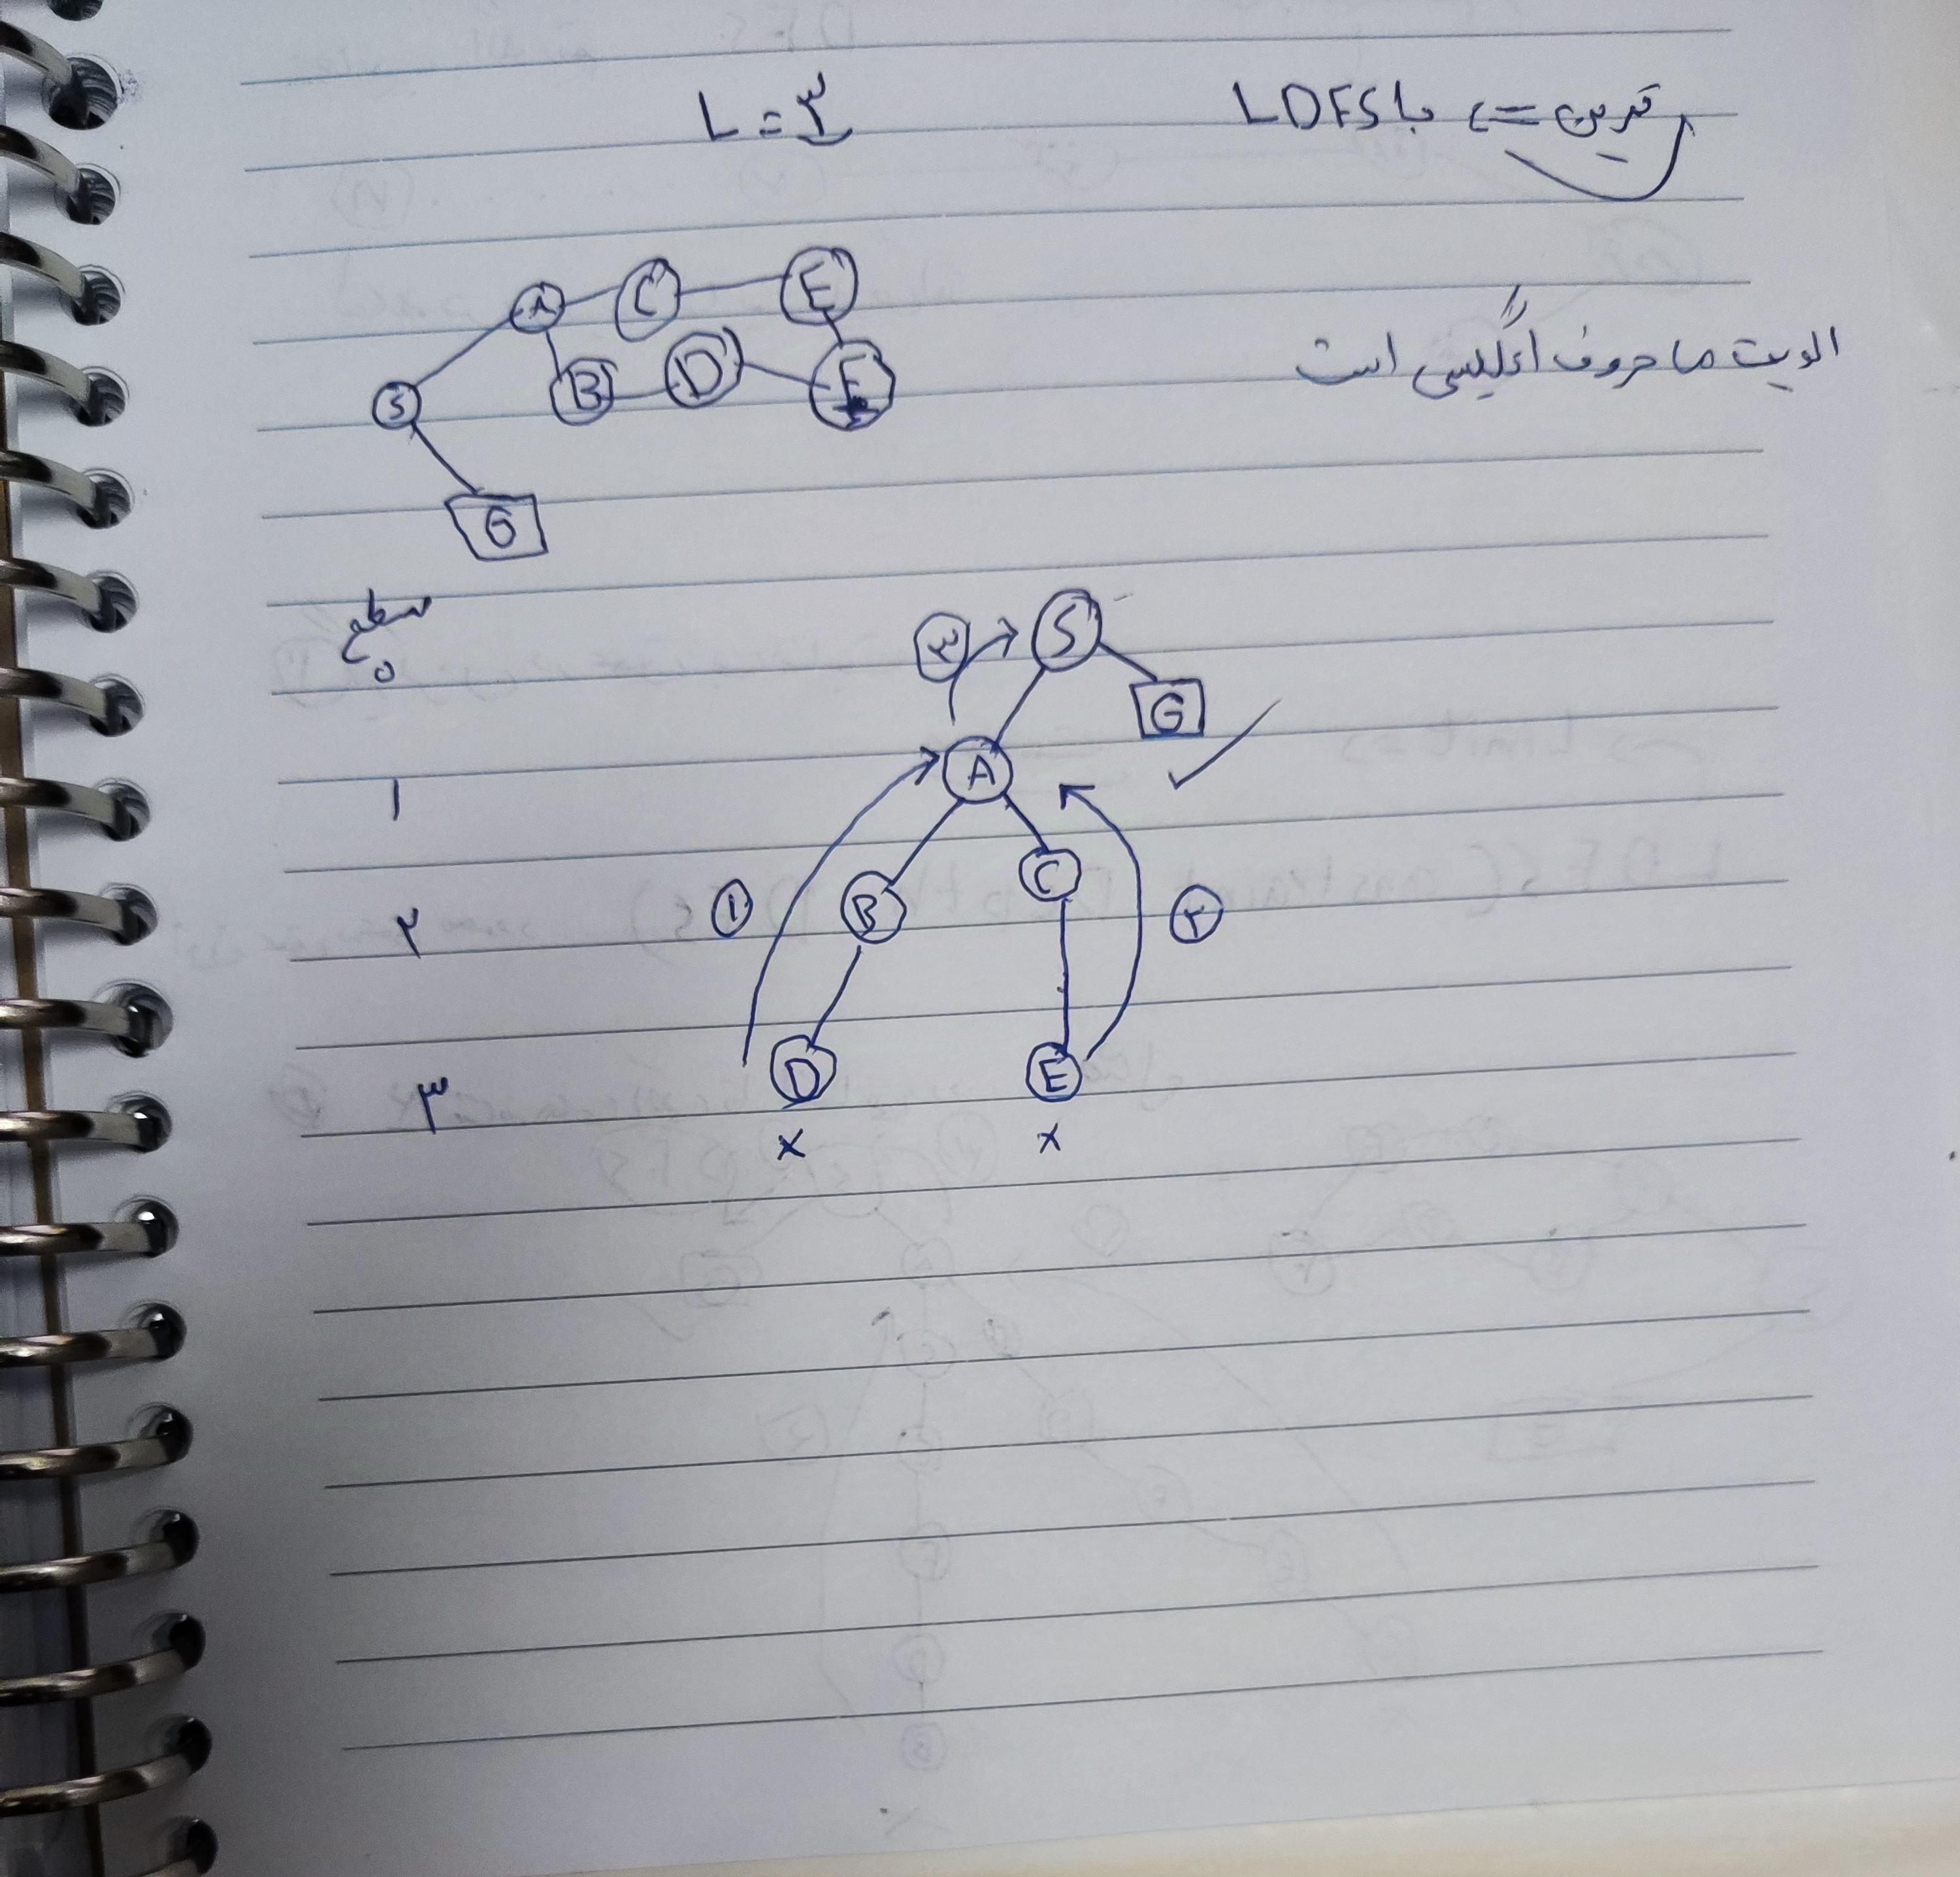 تمرین => با LDFS L = ۳
الویت ما حروف انگلیسی است
A C E
S B D F
G
سطح
۰ ۳ S
G
۱ A
۲ ۱ B C ۲
۳ D E
x x